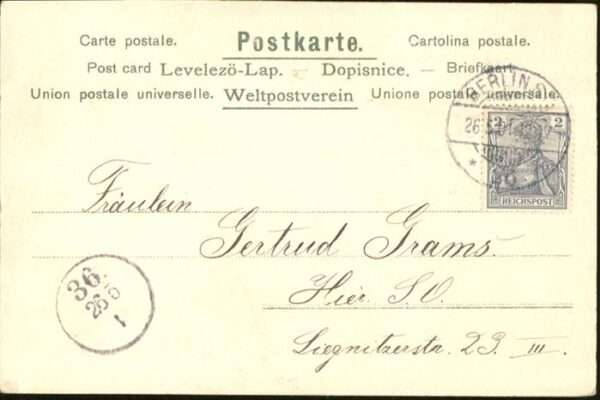 Carte postale. Postkarte. Cartolina postale.
Post card Levelező-Lap. – Dopisnice. – Briefkaart
Union postale universelle. Weltpostverein Unione postale universale.
BERLIN
2 2
REICHSPOST
Fräulein
Gertrud Grams.
Hier S.O.
Liegnitzerstr. 23. III.
36.
26/5
1